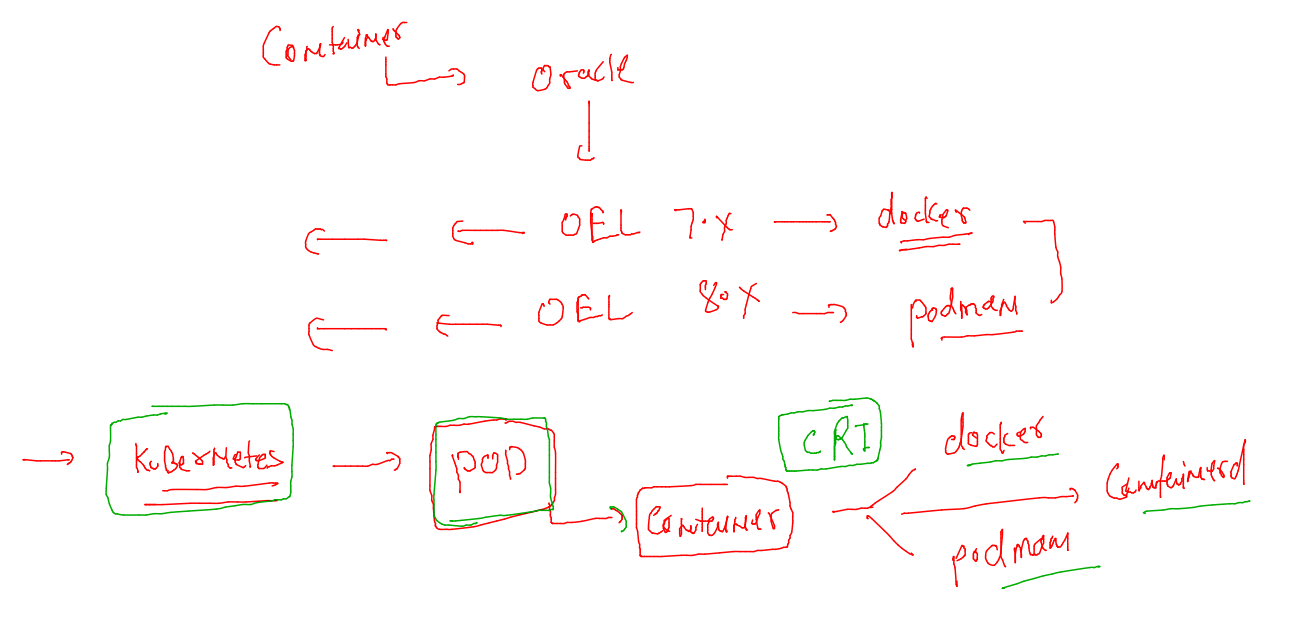 Container
Oracle
OEL 7.x docker
OEL 8.x podman
KuBernetes POD Container CRI docker
Containerd
podman